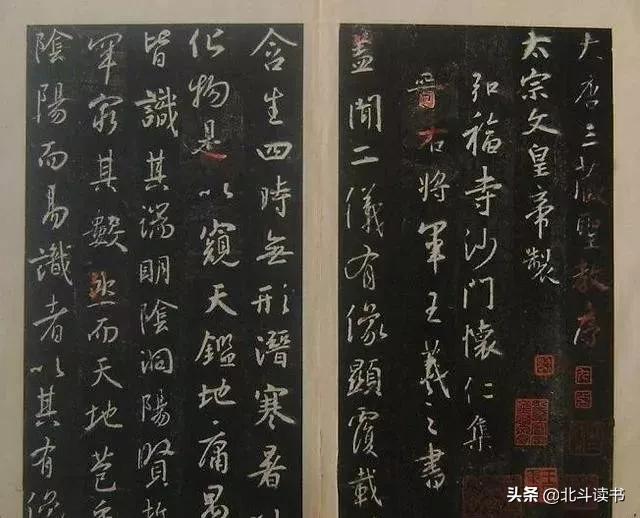 大唐三藏聖教序
太宗文皇帝製
弘福寺沙門懷仁集
晉右將軍王羲之書
蓋聞二儀有像顯覆載
含生四時無形潛寒暑以
化物是以窺天鑑地庸愚
皆識其端明陰洞陽賢哲
罕窮其數然而天地苞乎
陰陽而易識者以其有像
头条 @北斗读书